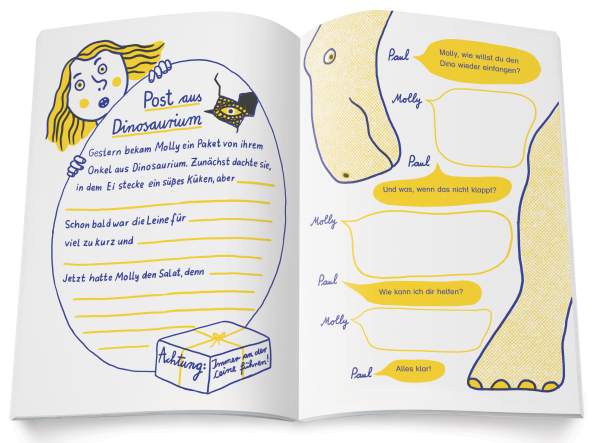 Post aus
Dinosaurium
Gestern bekam Molly ein Paket von ihrem
Onkel aus Dinosaurium. Zunächst dachte sie,
in dem Ei stecke ein süßes Küken, aber
Schon bald war die Leine für
viel zu kurz und
Jetzt hatte Molly den Salat, denn
Achtung:
Immer an der
Leine führen!
Paul
Molly, wie willst du den
Dino wieder einfangen?
Molly
Paul
Und was, wenn das nicht klappt?
Molly
Paul
Wie kann ich dir helfen?
Molly
Paul
Alles klar!